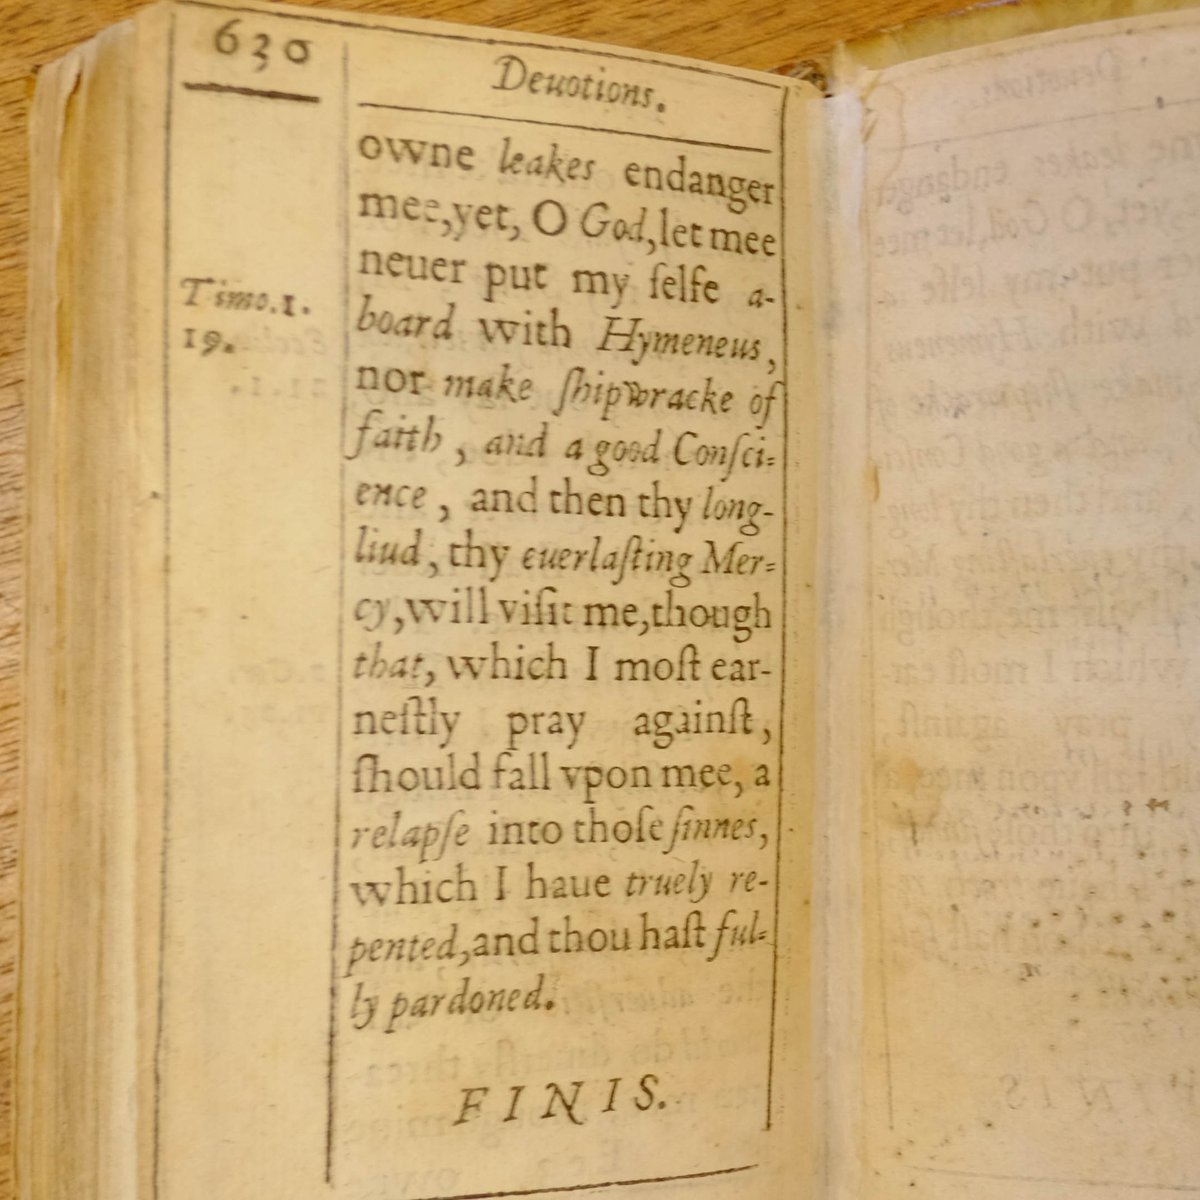 630
Deuotions.
owne leakes endanger
mee,yet, O God,let mee
neuer put my ſelfe a-
board with Hymeneus,
nor make ſhipwracke of
faith, and a good Conſci-
ence, and then thy long-
liud, thy euerlaſting Mer-
cy,will viſit me,though
that, which I moſt ear-
neſtly pray againſt,
ſhould fall vpon mee, a
relapſe into thoſe ſinnes,
which I haue truely re-
pented,and thou haſt ful-
ly pardoned.
FINIS.
Timo.1.
19.